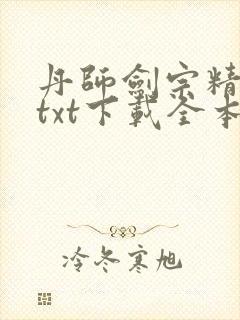 丹師劍宗精
txt下載全本
冷冬寒旭